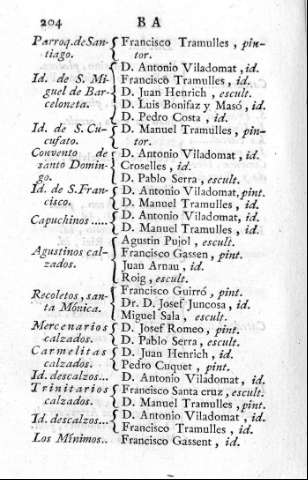 204 B A
Parroq. de San- { Francisco Tramulles, pin-
tiago. tor.
D. Antonio Viladomat, id.
Id. de S. Mi- { Francisco Tramulles, id.
guel de Bar- D. Juan Henrich, escult.
celoneta. D. Luis Bonifaz y Masó, id.
D. Pedro Costa, id.
Id. de S. Cu- { D. Manuel Tramulles, pin-
cufato. tor.
Convento de { D. Antonio Viladomat, id.
santo Domin- Croselles, id.
go. D. Pablo Serra, escult.
Id. de S. Fran- { D. Antonio Viladomat, pint.
cisco. D. Manuel Tramulles, id.
Capuchinos ..... { D. Antonio Viladomat, id.
D. Manuel Tramulles, id.
Agustin Pujol, escult.
Agustinos cal- { Francisco Gassen, pint.
zados. Juan Arnau, id.
Roig, escult.
Recoletos, san- { Francisco Guirró, pint.
ta Mónica. Dr. D. Josef Juncosa, id.
Miguel Sala, escult.
Mercenarios { D. Josef Romeo, pint.
calzados. D. Pablo Serra, escult.
Carmelitas { D. Juan Henrich, id.
calzados. Pedro Cuquet, pint.
Id. descalzos... D. Antonio Viladomat, id.
Trinitarios { Francisco Santa cruz, escult.
calzados. D. Manuel Tramulles, pint.
Id. descalzos... { D. Antonio Viladomat, id.
Francisco Tramulles, id.
Los Mínimos.. Francisco Gassent, id.